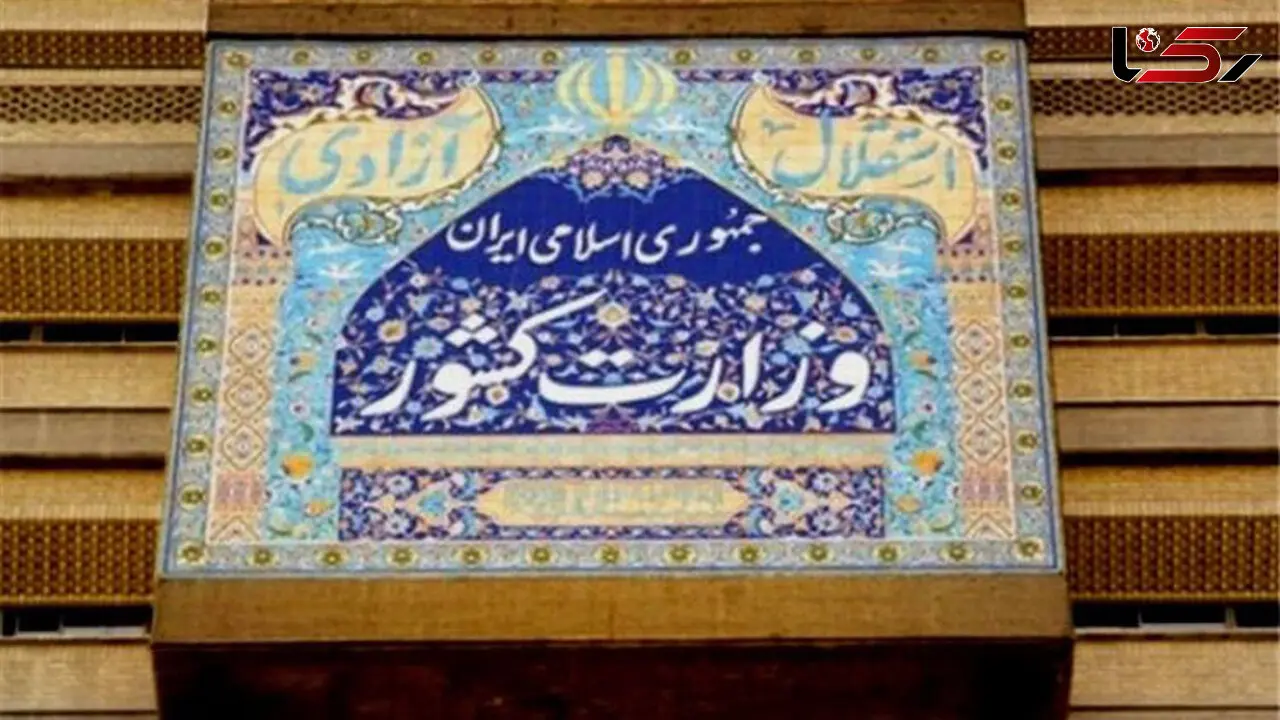 رکنا
استقلال
آزادی
جمهوری اسلامی ایران
وزارت کشور